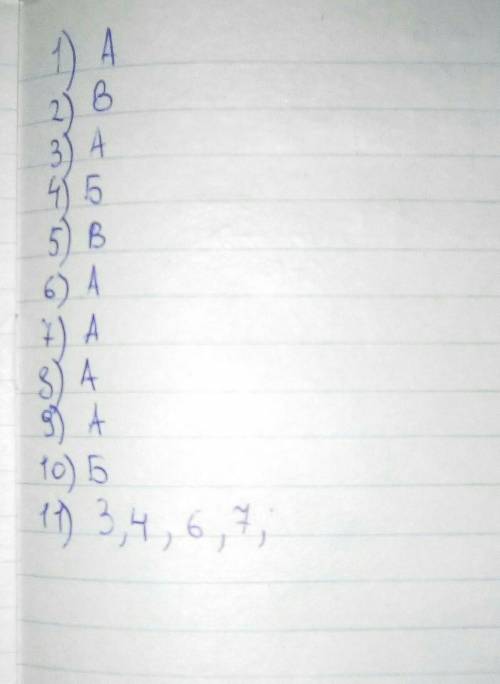 1) А
2) В
3) А
4) Б
5) В
6) А
7) А
8) А
9) А
10) Б
11) 3, 4, 6, 7,